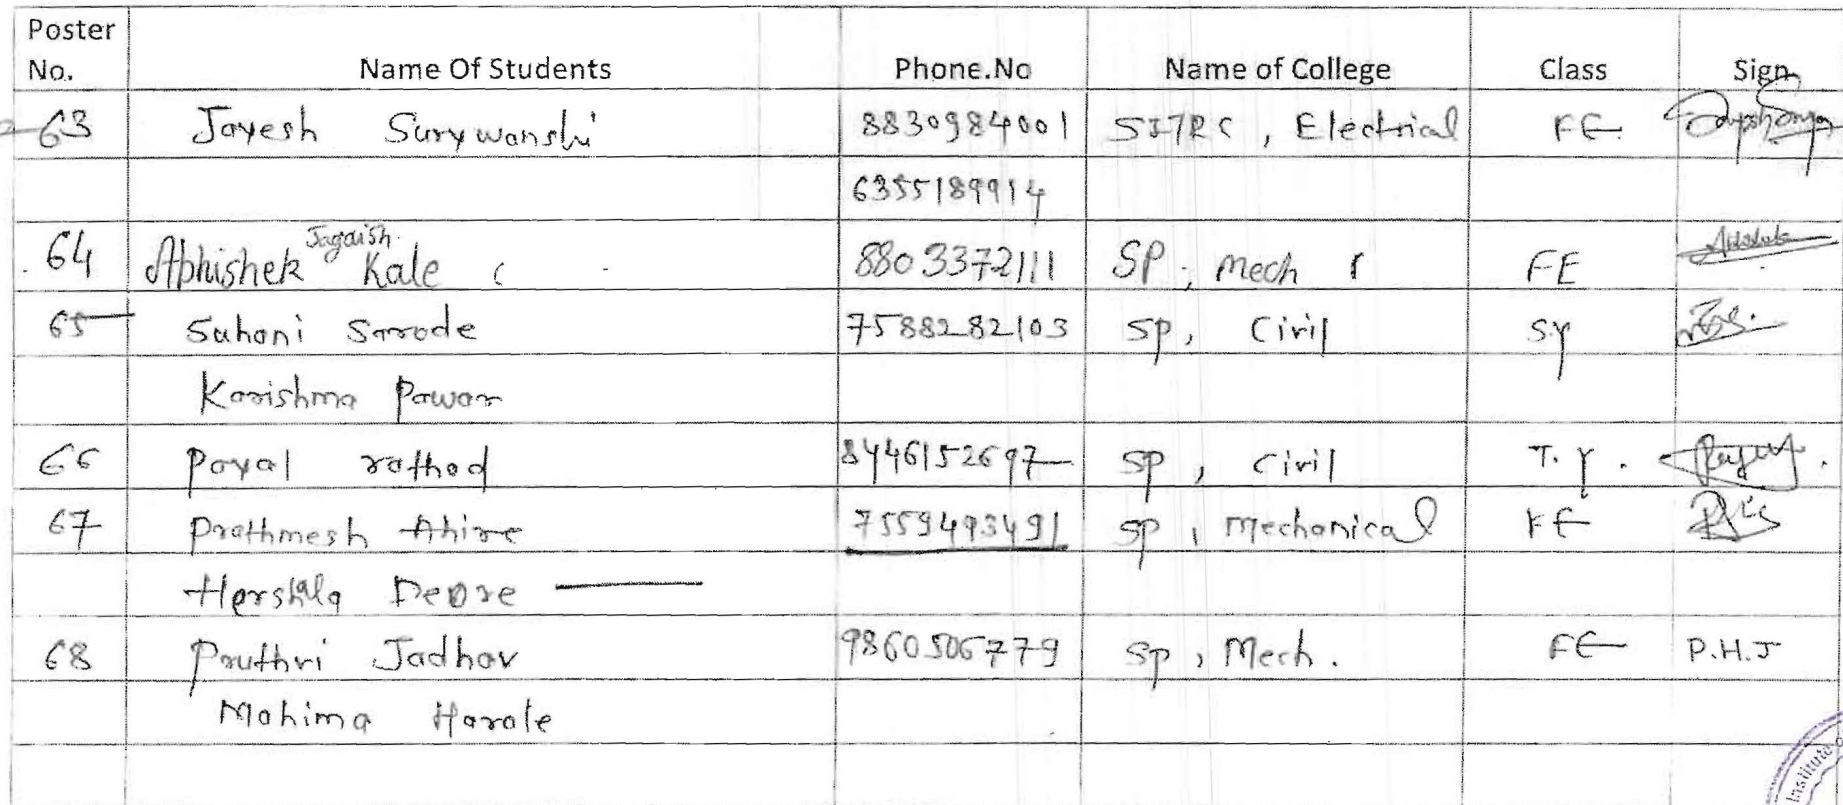 Poster No. Name Of Students Phone.No Name of College Class Sign
63 Jayesh Surywanshi 8830984001 SITRC , Electrical FE.
6355189914
64 Abhishek Jagdish Kale 8803372111 SP , Mech FE
65 Suhani Sarode 7588282103 SP , Civil SY
Karishma Pawar
66 Payal rathod 8446152697 SP , Civil T.Y.
67 Prathmesh Ahire 7559493491 SP , Mechanical FE
Deore
68 Pruthvi Jadhav 9860506779 SP , Mech. FE P.H.J
Mahima Harale
Institute